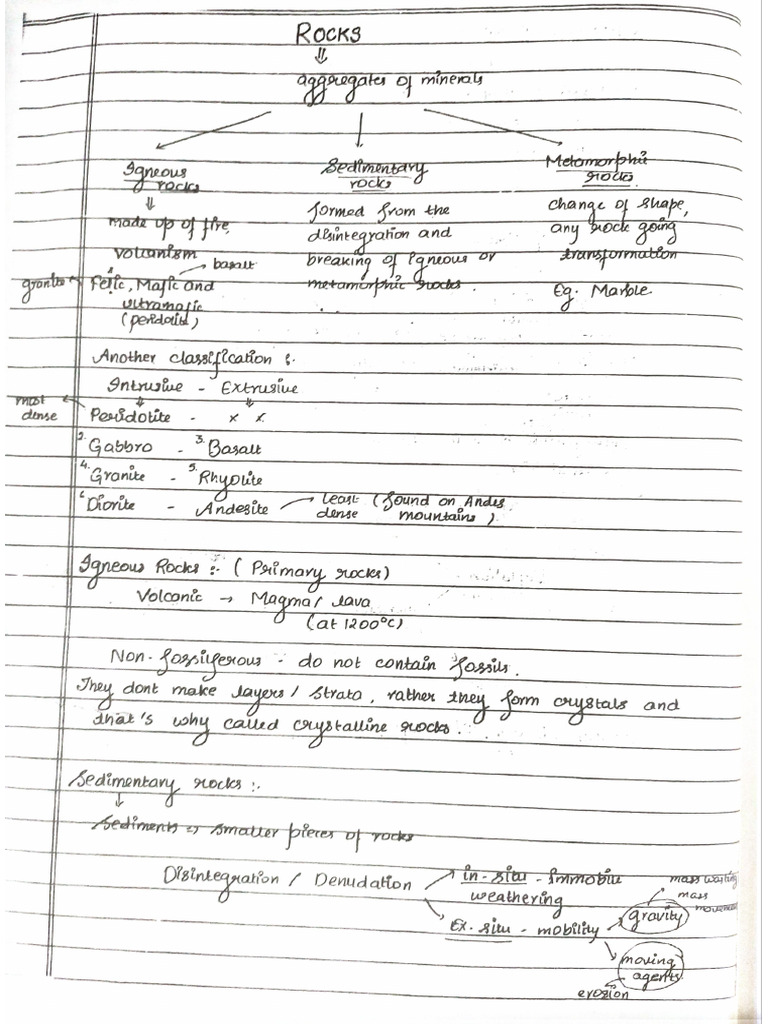 ROCKS
⇓
aggregates of minerals
Igneous rocks
⇓
made up of fire,
volcanism
→ basalt
granite ← Felic, Mafic and
ultramafic
(peridotite)
Sedimentary rocks
formed from the
disintegration and
breaking of igneous or
metamorphic rocks.
Metamorphic rocks
change of shape,
any rock going
transformation
Eg. Marble
Another classification :-
Intrusive - Extrusive
most dense ← Peridotite - x x
2. Gabbro - 3. Basalt
4. Granite - 5. Rhyolite
6. Diorite - Andesite → Least dense (found on Andes mountains)
Igneous Rocks :- (Primary rocks)
Volcanic → Magma / lava
(at 1200°C)
Non-fossiliferous - do not contain fossils.
They dont make layers / strata, rather they form crystals and
that's why called crystalline rocks.
Sedimentary rocks :-
↓
Sediments => smaller pieces of rocks
Disintegration / Denudation → in-situ - immobile
weathering
→ Ex-situ - mobility → gravity
mass wasting
mass movement
→ moving agents
erosion